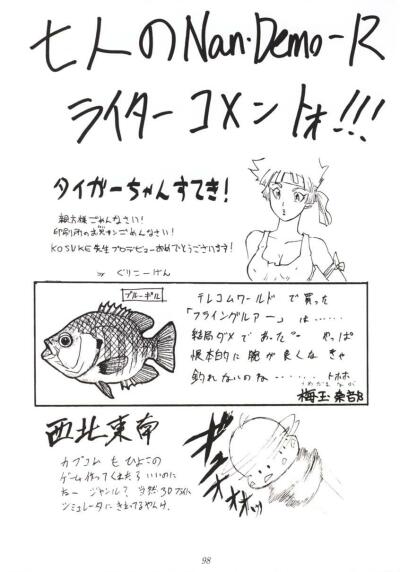 七人のNan・Demo-R
ライター コメントォ!!!
タイガーちゃんすてき!
親方様ごめんなさい!
印刷所のお兄サンごめんなさい!
KOSUKE先生プロデビューおめでとうございます!
by ぐりこーげん
ブルーギル
テレコムワールド で買った
「フライングルアー」は……
結局ダメであったデー やっぱ
根本的に腕が良くなきゃ
釣れないのね…… トホホ
梅玉 楽吉B
西北東南
カプコム も ひよこの
ゲーム作ってくれたらいいのに
ねー ジャンル? 当然3D
シミュレータにきまってるやんけ。
ギュ
オオオッ
98